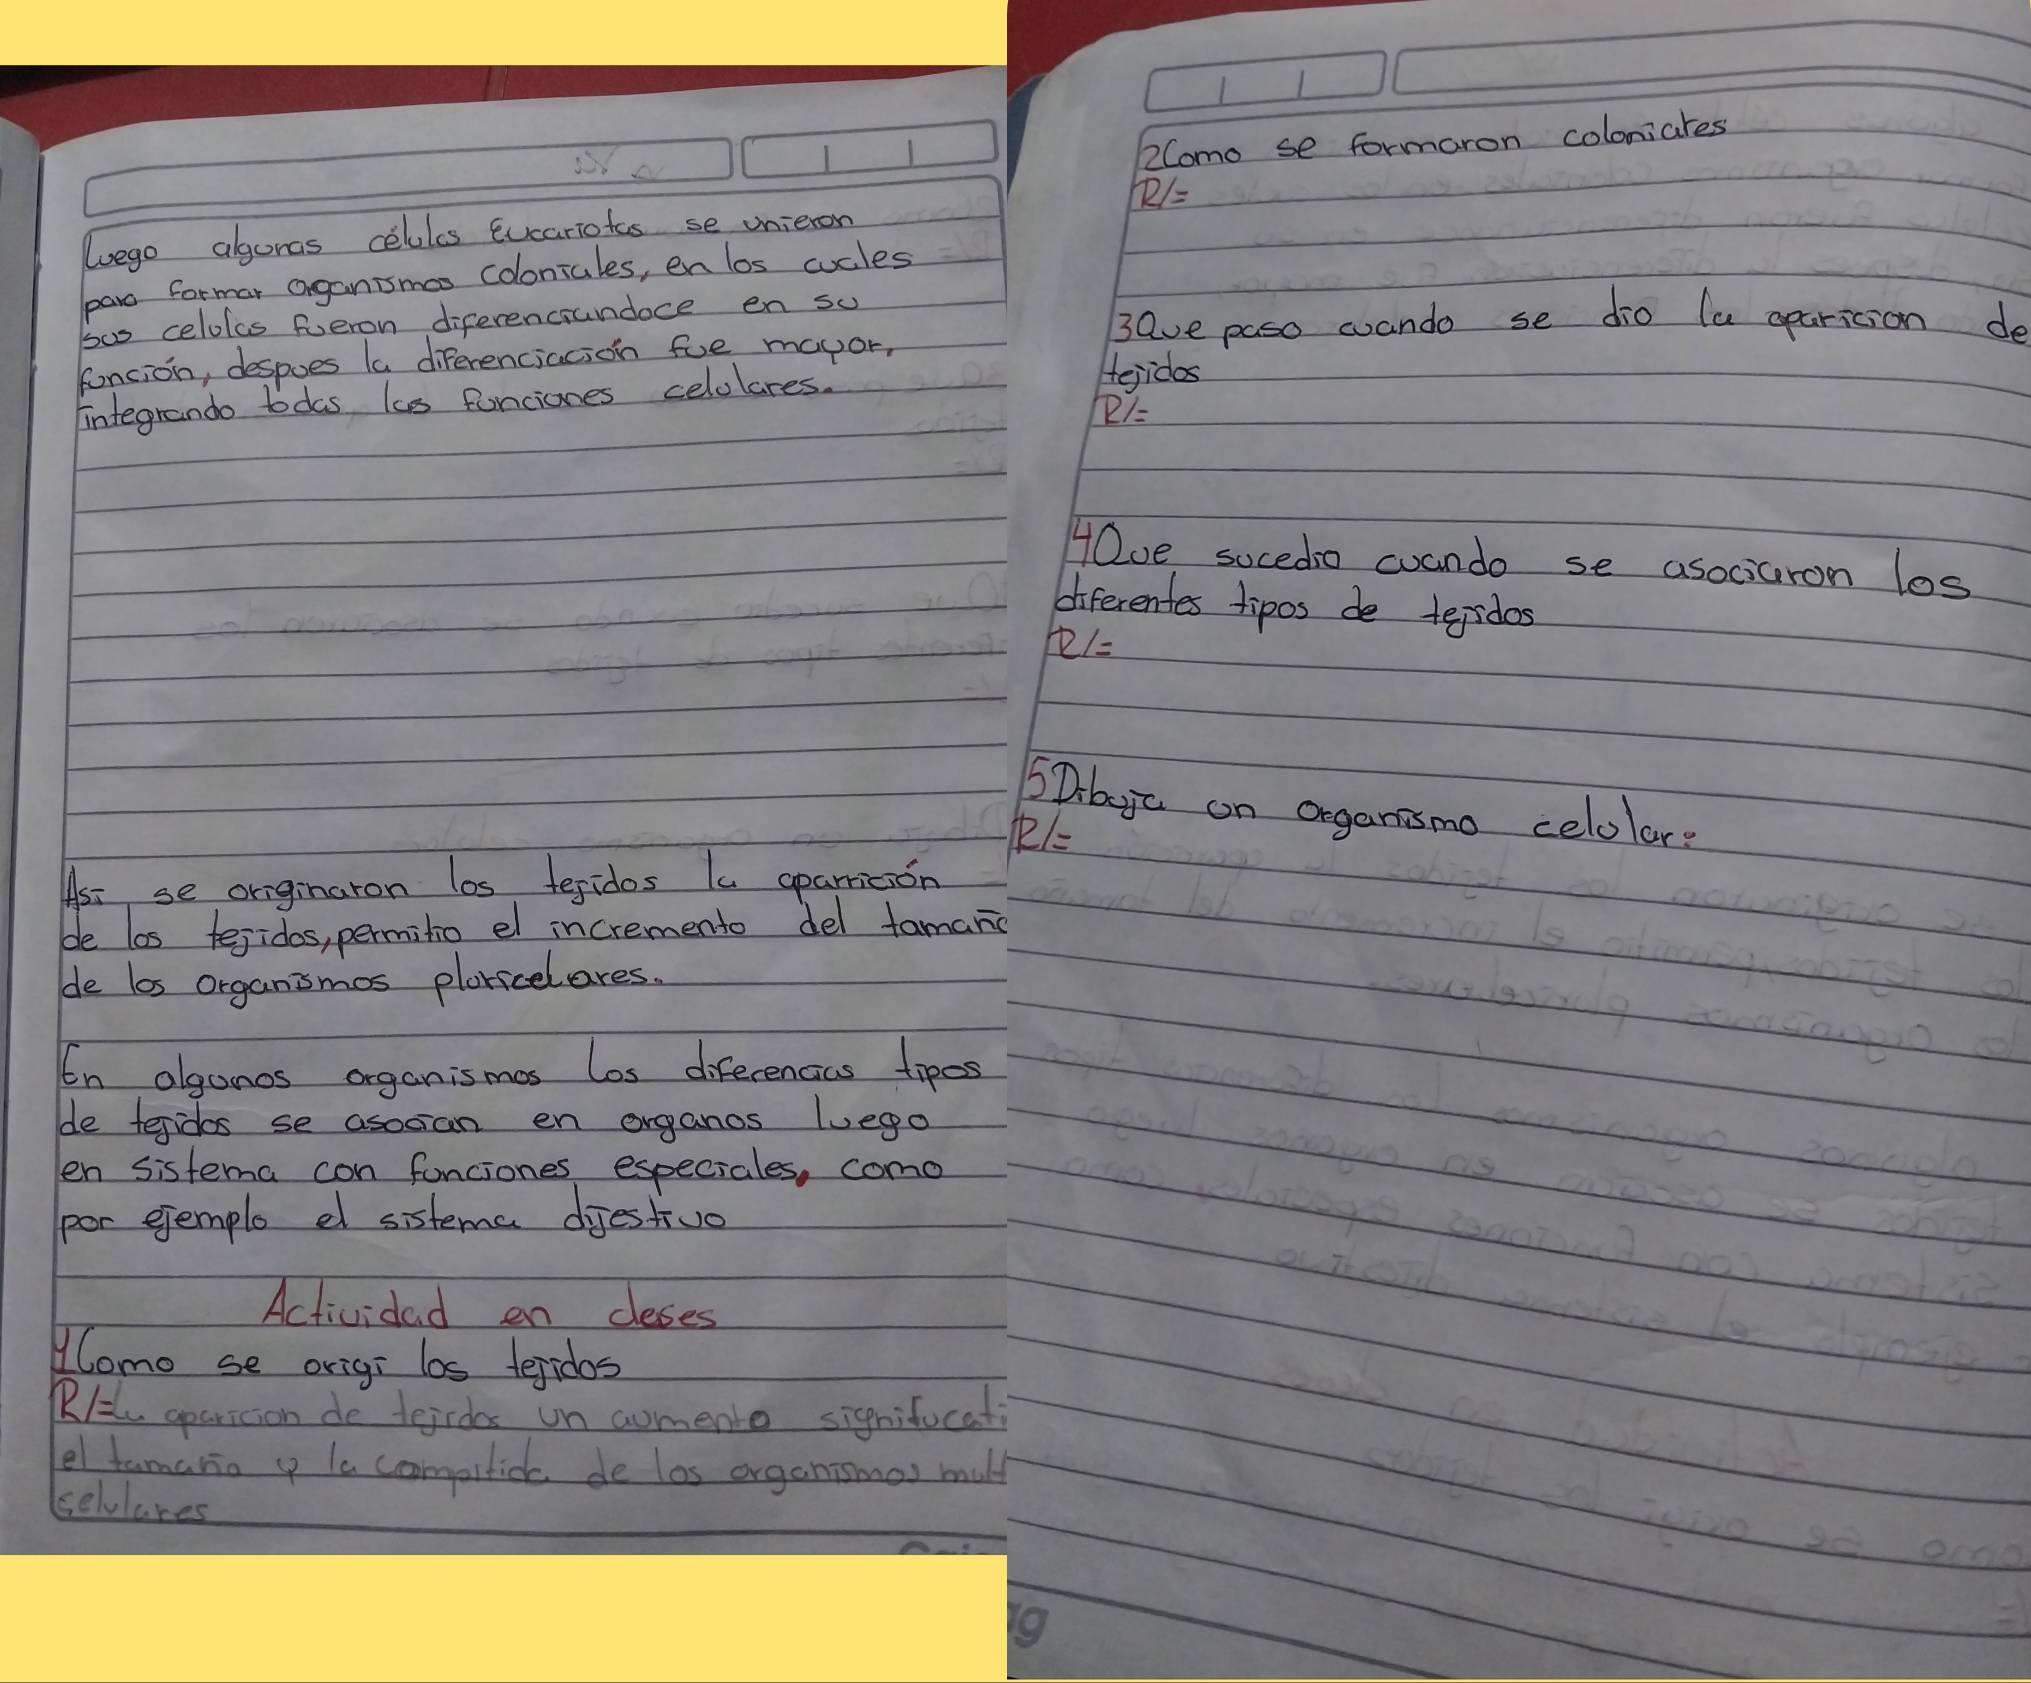 luego algunas células Eucariotas se unieron
para formar organismos coloniales, en los cuales
sus celulas fueron diferenciandoce en su
función, despues la diferenciación fue mayor,
integrando todas las funciones celulares.
Asi se originaron los tejidos la aparrición
de los tejidos, permitio el incremento del tamaño
de los organismos pluricelares.
En algunos organismos los diferencias tipos
de tejidos se asocian en organos luego
en sistema con funciones especiales, como
por ejemplo el sistema dijestivo
Actividad en cleses
1 Como se origi los tejidos
R/= La aparicion de tejidos un aumento significati
el tamaño y la de los organismos mult
selulares
2 Como se formaron coloniales
R/=
3 Que paso cuando se dio la aparicion de
tejidos
R/=
4 Que sucedio cuando se asociaron los
diferentes tipos de tejidos
R/=
5 Dibuja un organismo celular:
R/=